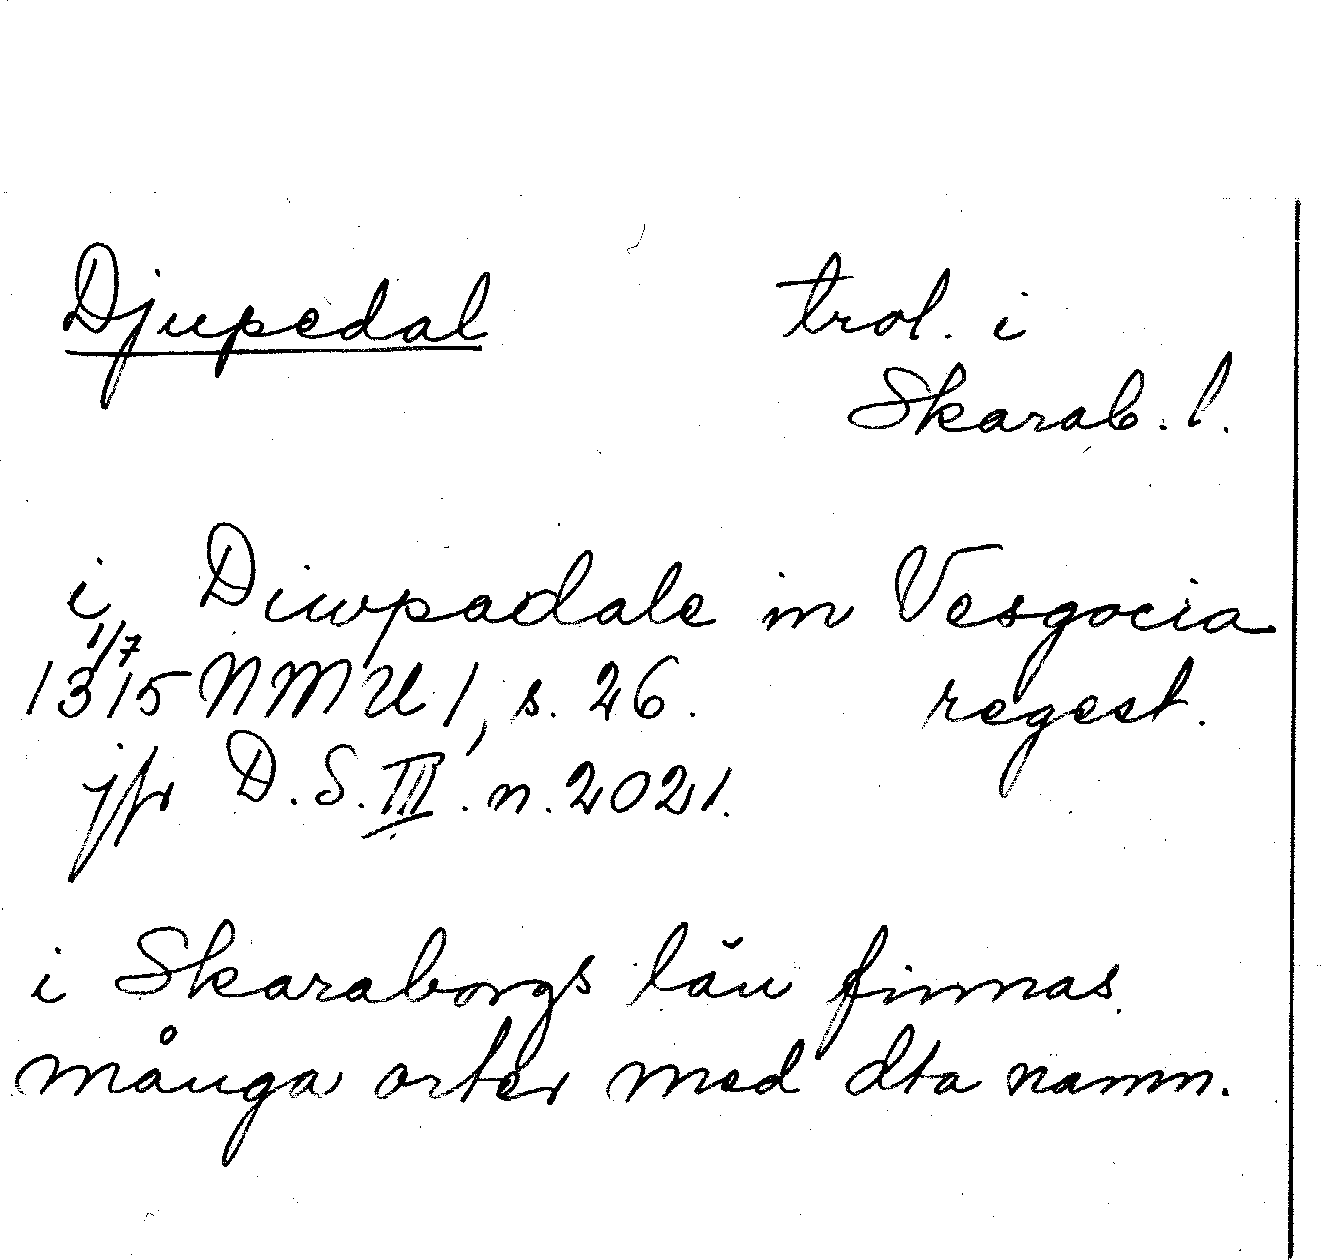 Djupedal trol. i
Skarab. l.
i Diwpadale in Vesgocia
1/7
1315 NMU 1, s. 26. regest.
jfr D.S. III. n. 2021.
i Skaraborgs län finnas
många orter med dta namn.